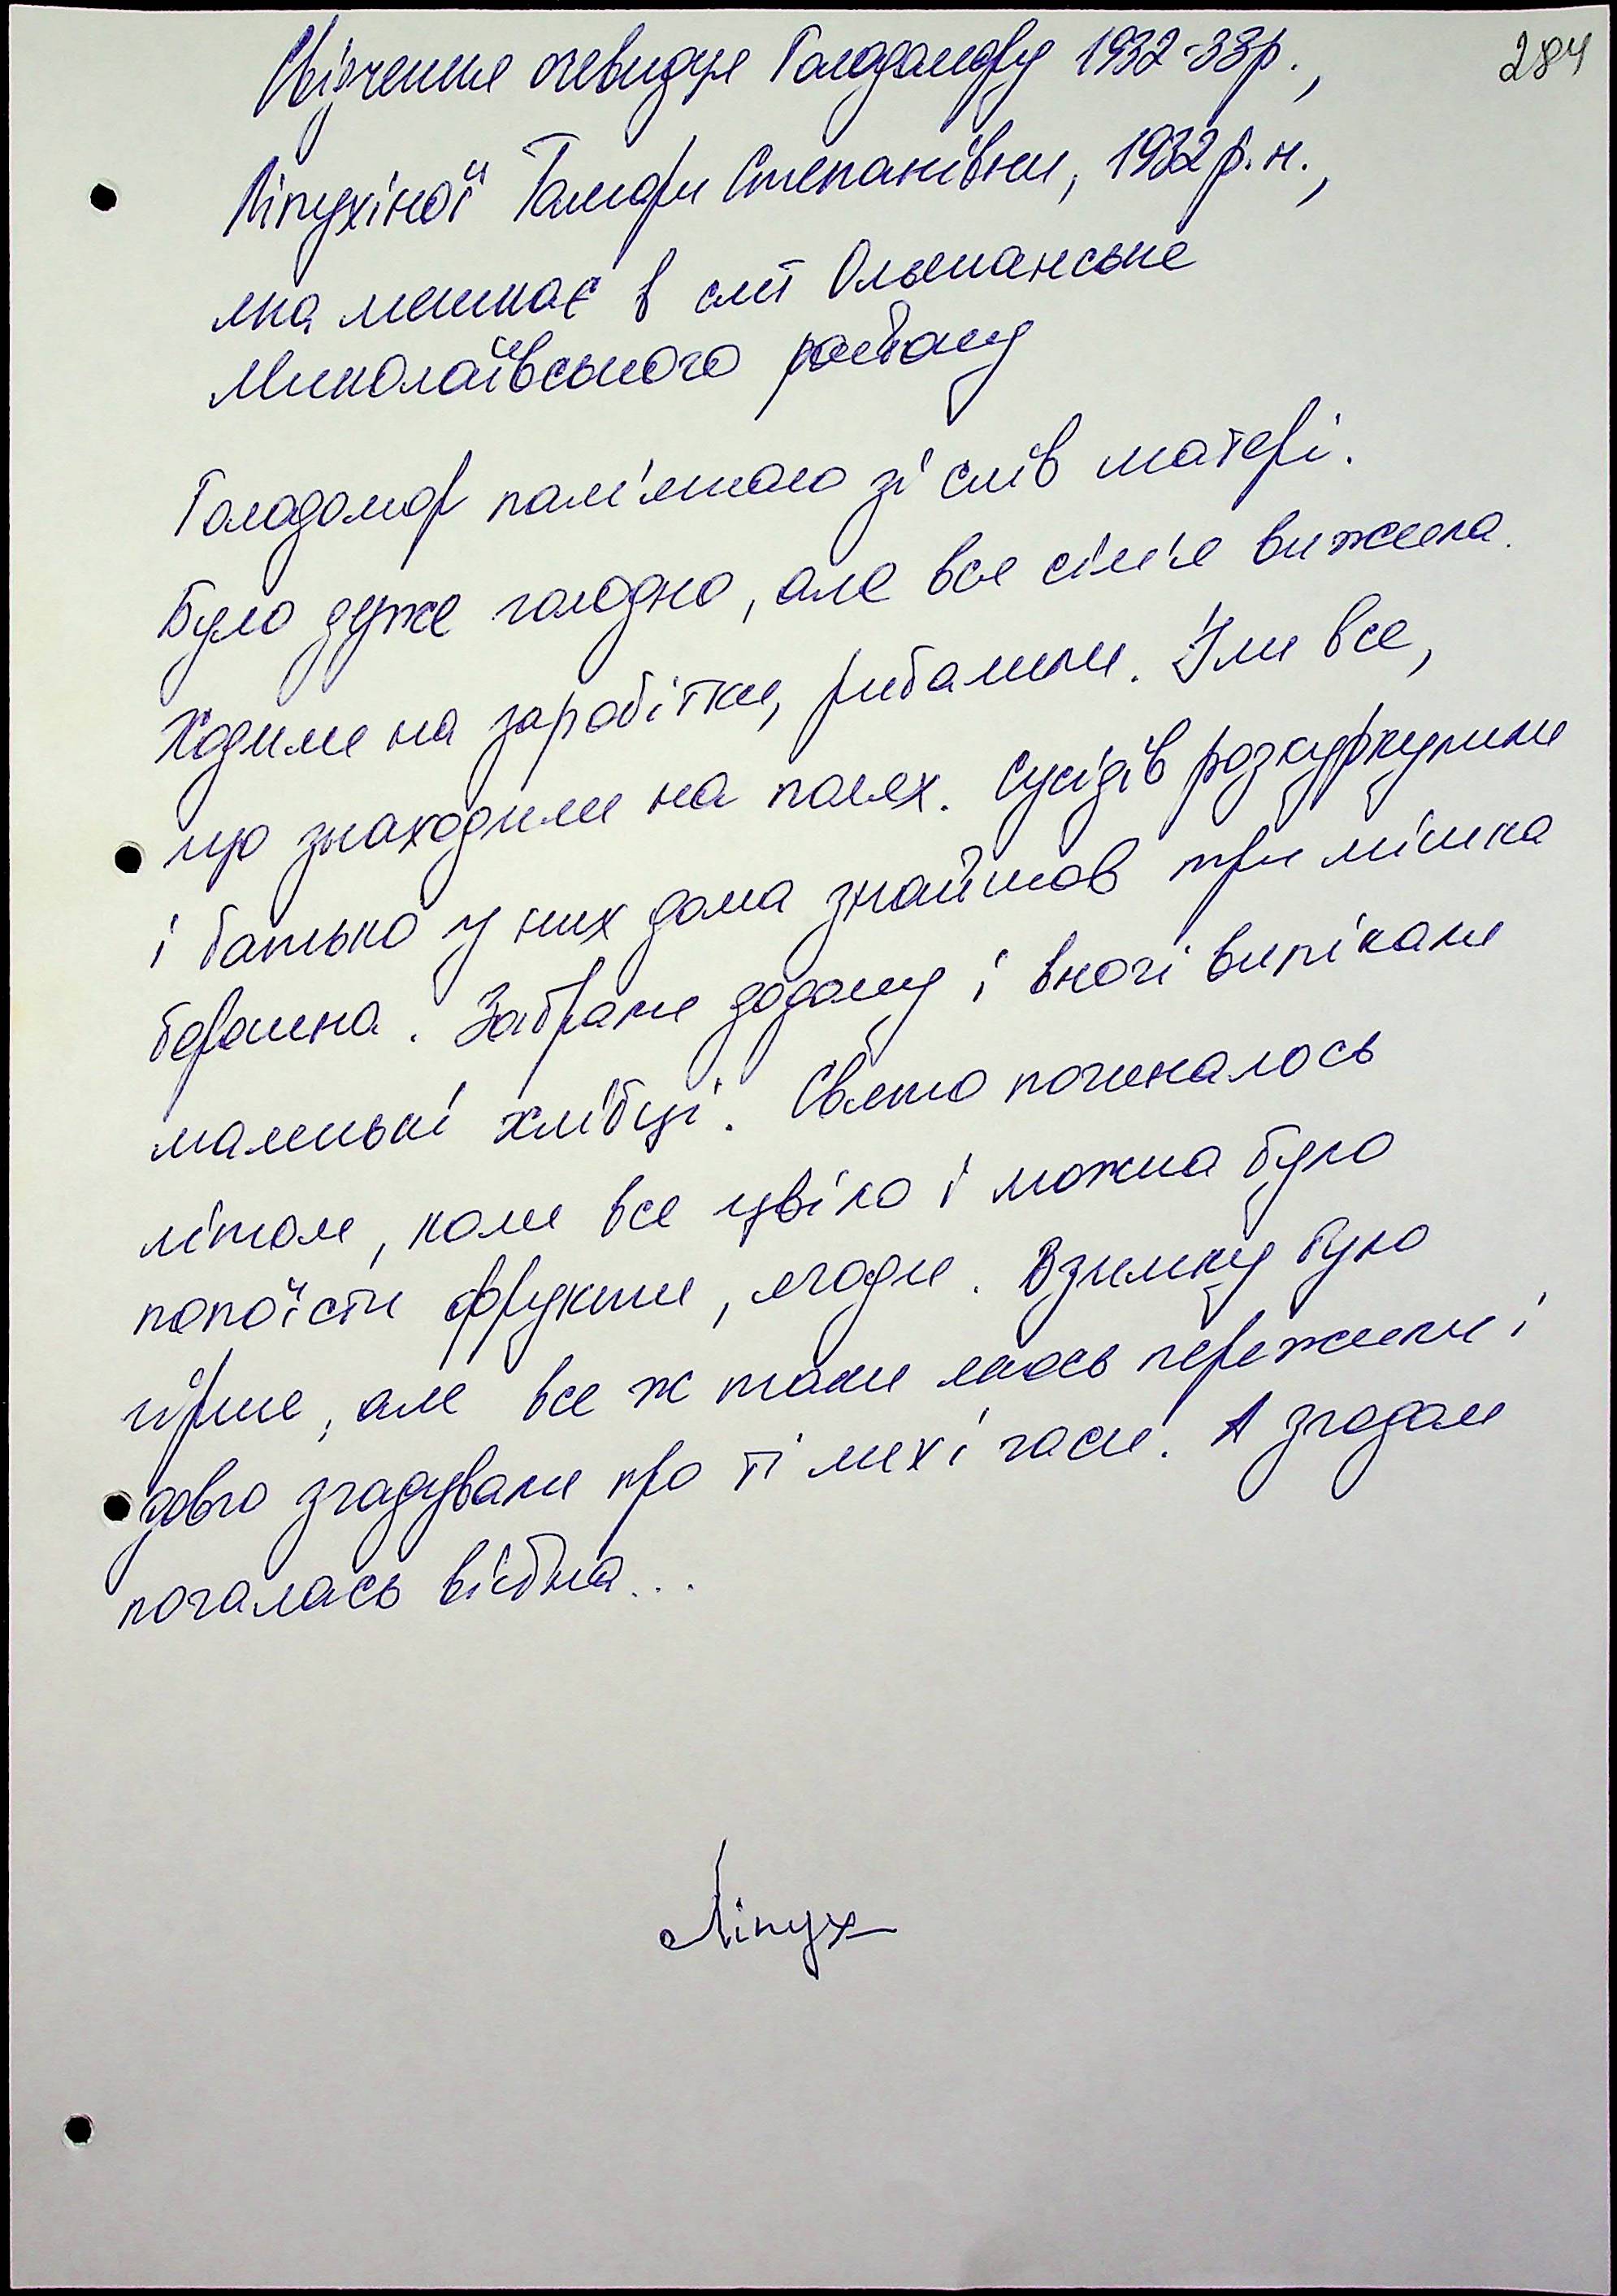 284
Свідчення очевидця Голодомору 1932-33р.,
Ліпухіної Тамари Степанівни, 1932 р.н.,
яка мешкає в смт Ольшанське
Миколаївського району
Голодомор пам'ятаю зі слів матері.
Було дуже голодно, але вся сім'я вижила.
Ходили на заробітки, рибалили. Їли все,
що знаходили на полях. Сусідів розкуркулили
і батько у них дома знайшов три мішка
борошна. Забрали додому і вночі випікали
маленькі хлібці. Свято починалось
літом, коли все цвіло і можна було
попоїсти фрукти, ягоди. Взимку було
гірше, але все ж таки якось пережили і
довго згадували про ті лихі часи. А згодом
почалась війна...
Ліпух